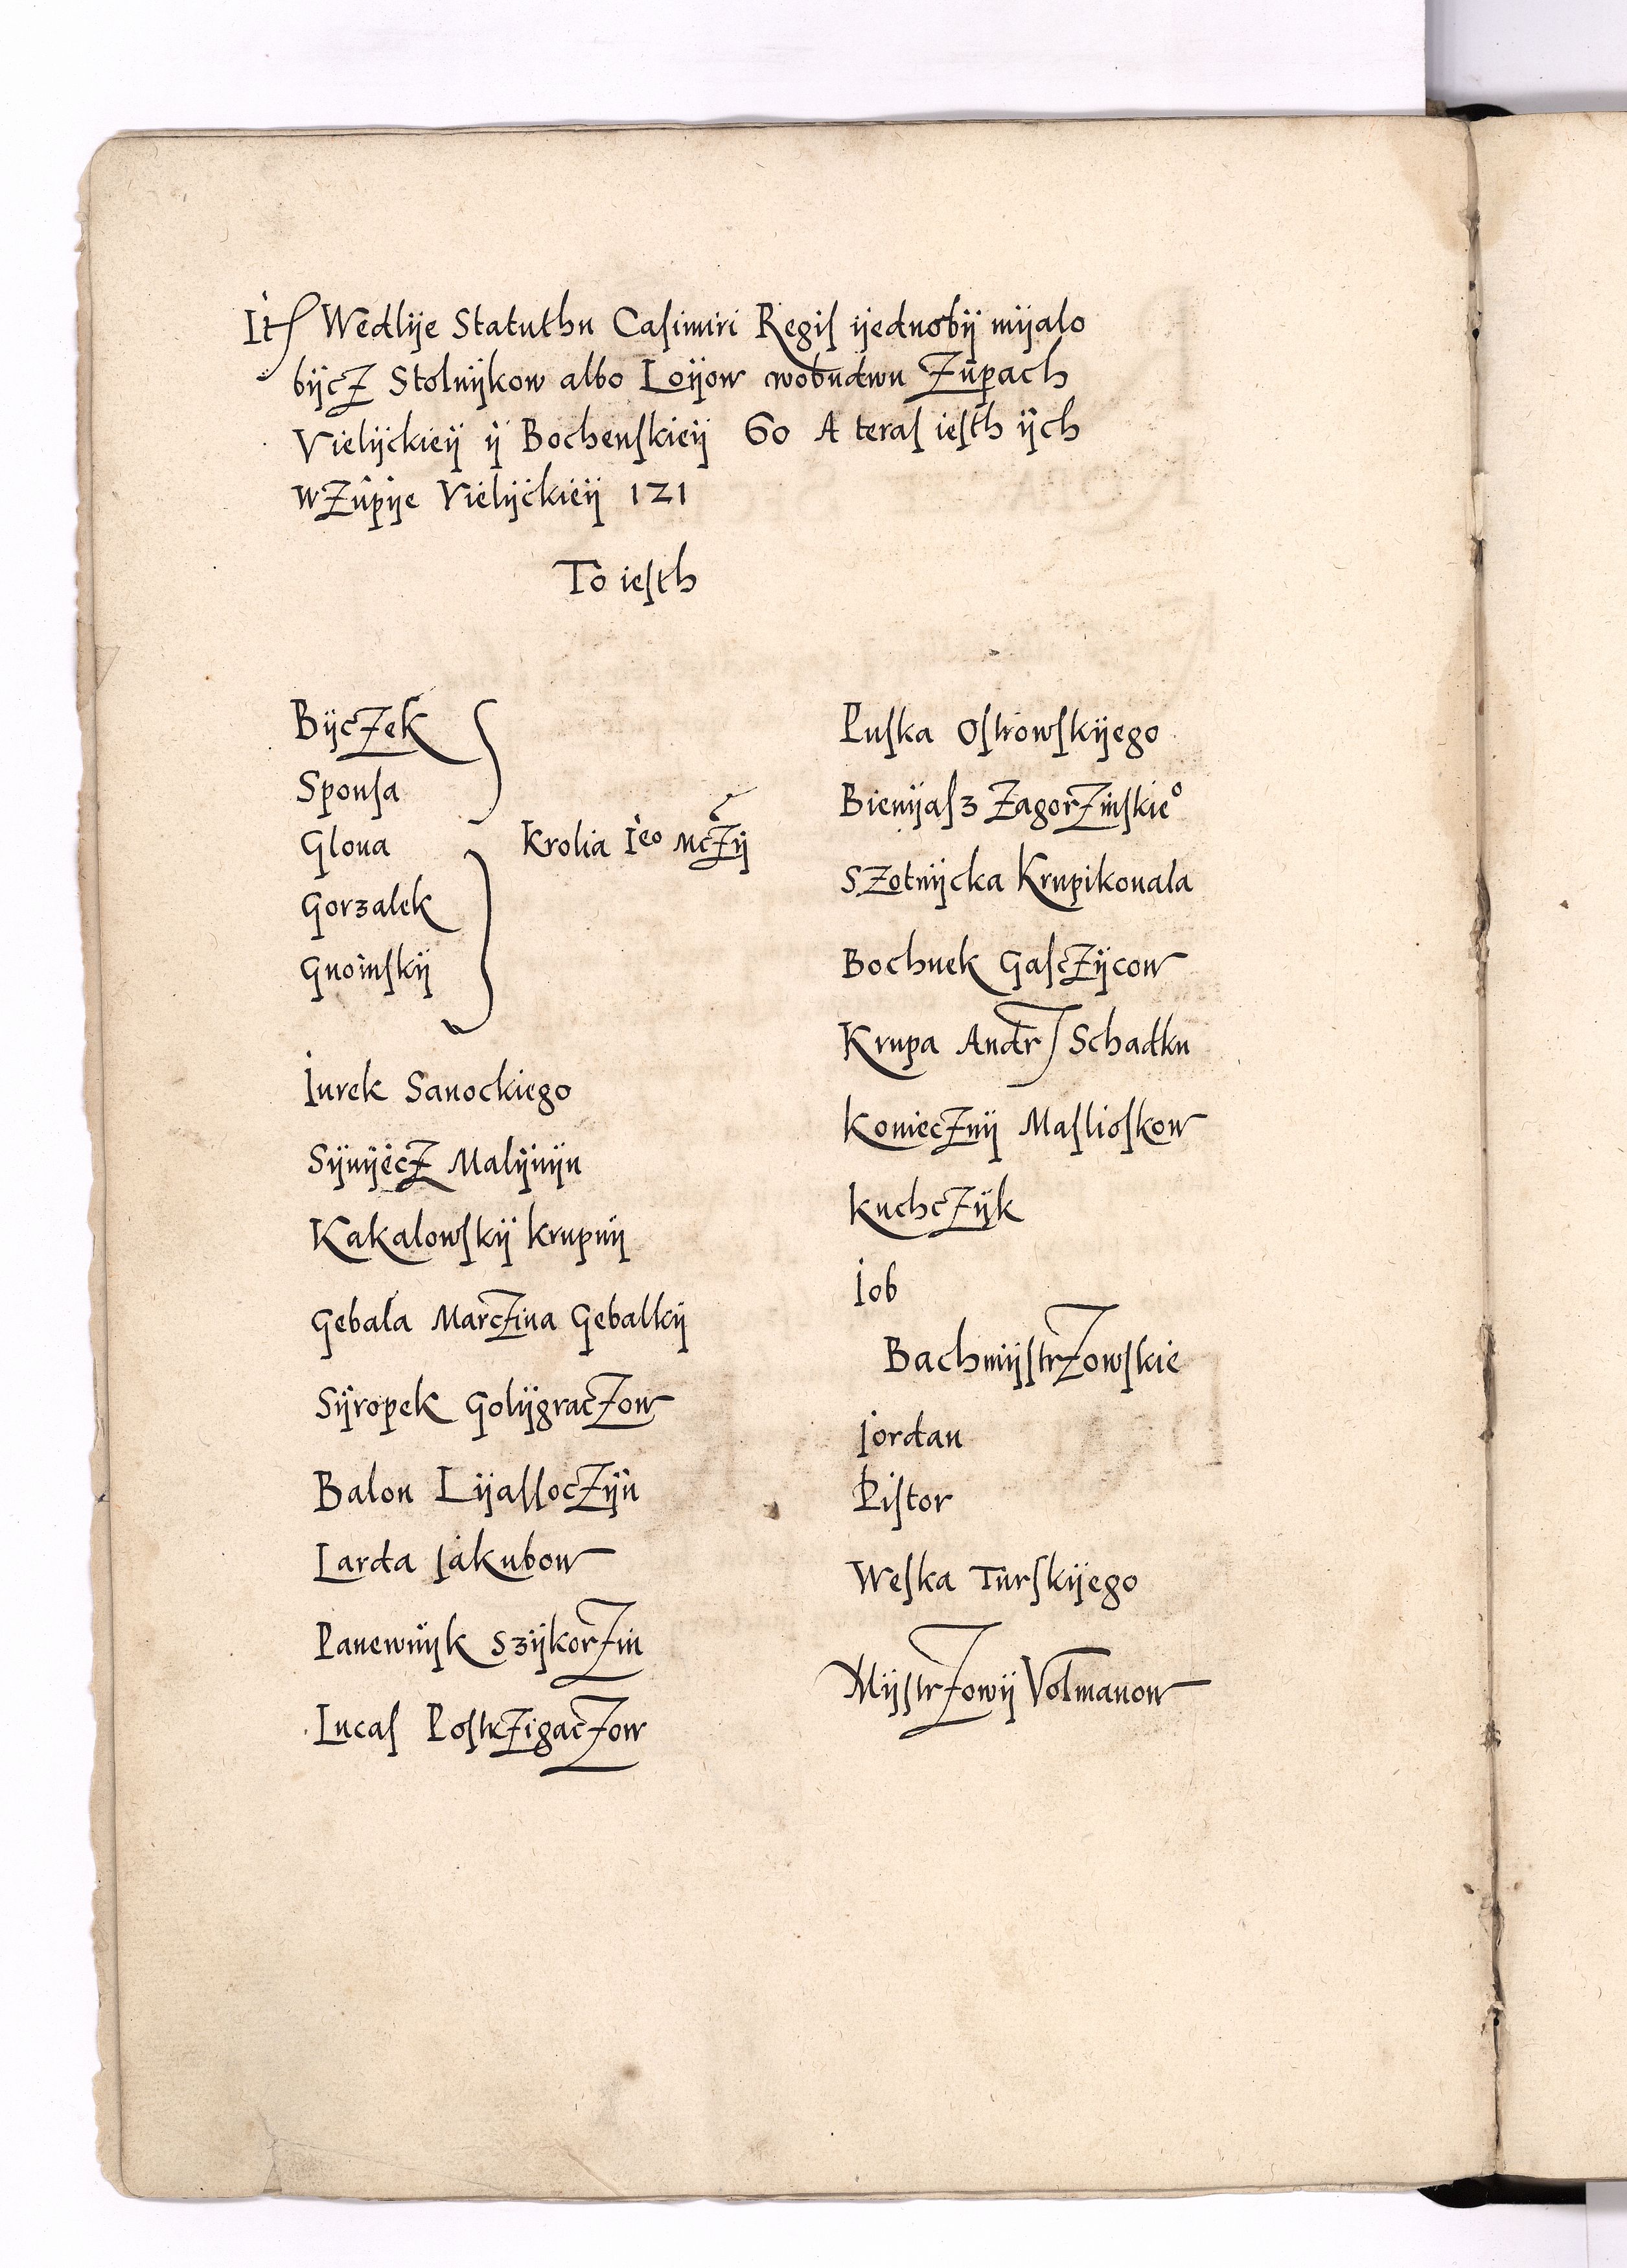 Itſ Wedlÿe Statuthu Caſimiri Regiſ ÿednobÿ mÿalo
bÿcz Stolnÿkow albo Loÿow wobudwu Zupach
Vielÿckieÿ ÿ Bochenſkieÿ 60 A teraſ ieſth ÿch
wZupÿe Vielÿckieÿ 121
To ieſth
Bÿczek
Sponſa
Gloua
Krolia Ieo Mczÿ
Gorzalek
Gnoinſkÿ
Iurek Sanockiego
Sÿnÿecz Malÿnÿn
Kakalowſkÿ krupnÿ
Gebala Marczina Gebalkÿ
Sÿropek Golÿgraczow
Balon Lÿaſſoczÿn
Larda Jakubow
Panewnÿk Szÿkorzin
Lucaſ Poſtrzigaczow
Puſka Oſtrowſkÿego
Bienÿaſz Zagorzinſkieº
SZotnÿcka Krupikouala
Bochnek Gaſczÿcow
Krupa Andrſ Schadku
Koniecznÿ Maſlioſkow
Kuchczÿk
Iob
Bachmÿſtrzowſkie
Jordan
Piſtor
Weſka Turſkÿego
Mÿſtrzowÿ Volmanow